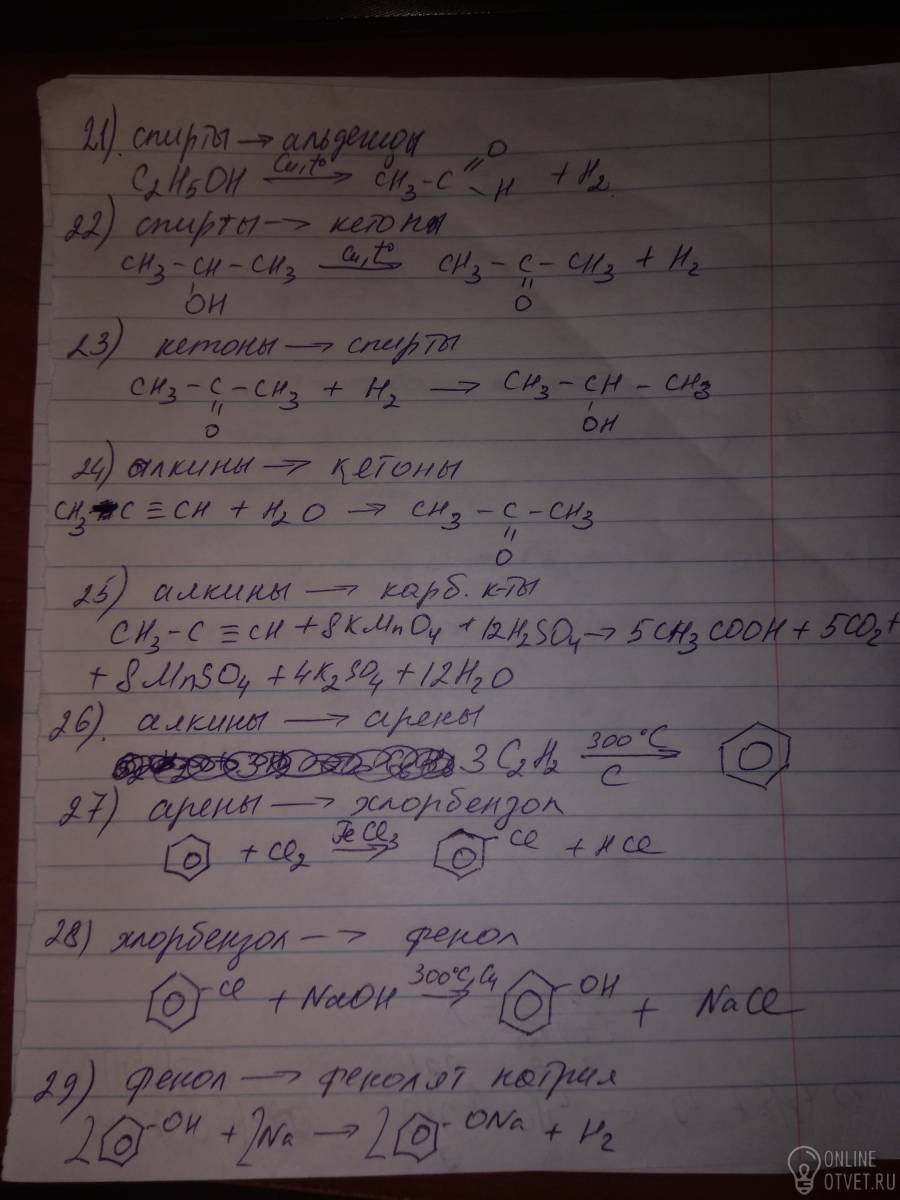 21) спирты → альдегиды
C2H5OH Cu, t° → CH3-C =O -H + H2
22) спирты → кетоны
CH3-CH-CH3 Cu, t° → CH3-C-CH3 + H2
OH O
23) кетоны → спирты
CH3-C-CH3 + H2 → CH3-CH-CH3
O OH
24) алкины → кетоны
CH3-C≡CH + H2O → CH3-C-CH3
O
25) алкины → карб. к-ты
CH3-C≡CH + 8KMnO4 + 12H2SO4 → 5CH3COOH + 5CO2 +
+ 8MnSO4 + 4K2SO4 + 12H2O
26) алкины → арены
3C2H2 300°C → C
27) арены → хлорбензол
+ Cl2 FeCl3 → Cl + HCl
28) хлорбензол → фенол
Cl + NaOH 300°C, Cu → OH + NaCl
29) фенол → фенолят натрия
2 OH + 2Na → 2 ONa + H2
ONLINE
OTVET.RU